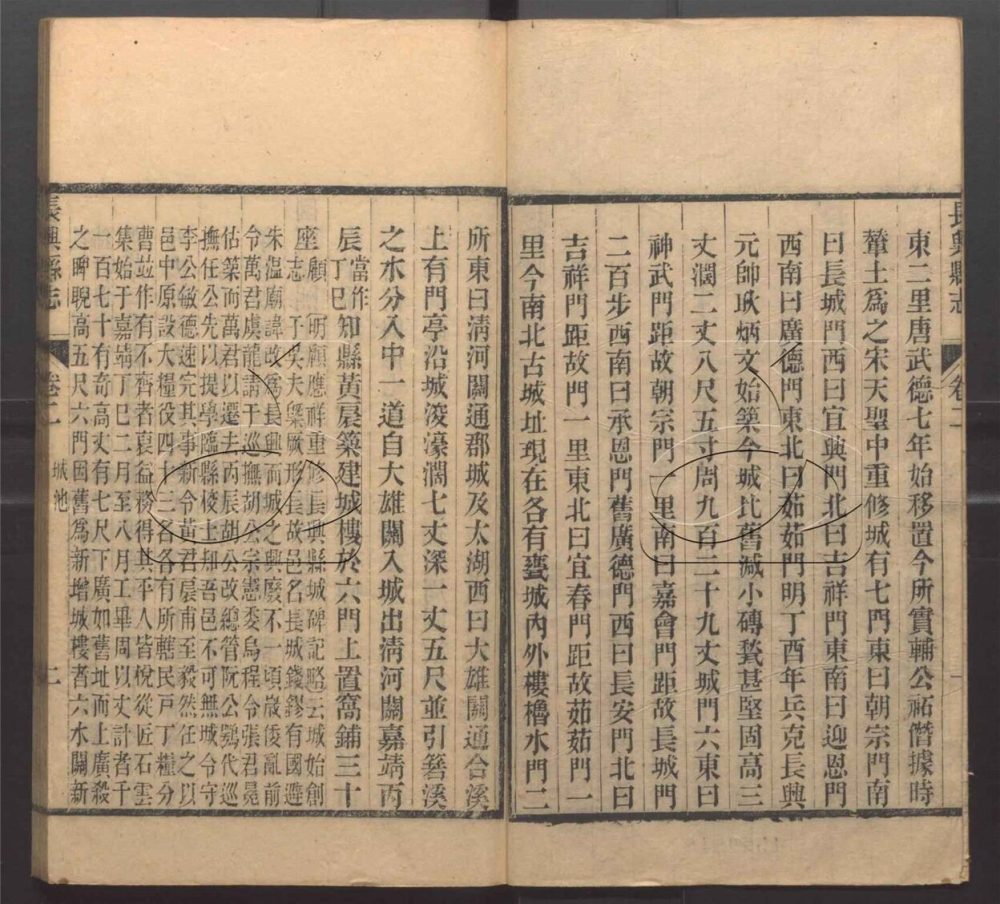 長興縣志
卷二
一
東二里唐武德七年始移置今所實輔公祏僭據時
輦土爲之宋天聖中重修城有七門東曰朝宗門南
曰長城門西曰宜興門北曰吉祥門東南曰迎恩門
西南曰廣德門東北曰茹茹門明丁酉年兵克長興
元帥耿炳文始築今城比舊減小磚甃甚堅固高三
丈濶二丈八尺五寸周九百二十九丈城門六東曰
神武門距故朝宗門一里南曰嘉會門距故長城門
二百步西南曰承恩門舊廣德門西曰長安門北曰
吉祥門距故門一里東北曰宜春門距故茹茹門一
里今南北古城址現在各有甕城內外樓櫓水門二
所東曰清河關通郡城及太湖西曰大雄關通合溪
上有門亭沿城浚濠濶七丈深一丈五尺並引箬溪
之水分入中一道自大雄關入城出清河關嘉靖丙
辰當作丁巳知縣黃扆築建城樓於六門上置窩鋪三十
座顧志明顧應祥重修長興縣城碑記略云城始創于吳夫槩厥形長故邑名長城錢鏐有國避
朱溫廟諱改爲長興而城之興廢不一頃歲倭亂前
令萬君虞龍請于巡撫胡公宗憲委烏程令張君冕
估築而萬君以遷去丙辰胡公改總管阮公鶚代巡
撫任公先以提學臨縣校士知吾邑不可無城令守
李公敏德速完其事新令黃君扆甫至毅然任之以
邑中原設大糧役四十三名各有所轄民戸丁糧分
曹竝作有不齊者裒益務得其平人皆悅從匠石雲
集始于嘉靖丁巳二月至八月工畢周以丈計者千
一百七十有奇高丈有七尺下廣如舊址而上廣殺
之睥睨高五尺六門因舊爲新增城樓者六水關新
長興縣志
卷二
城池
二